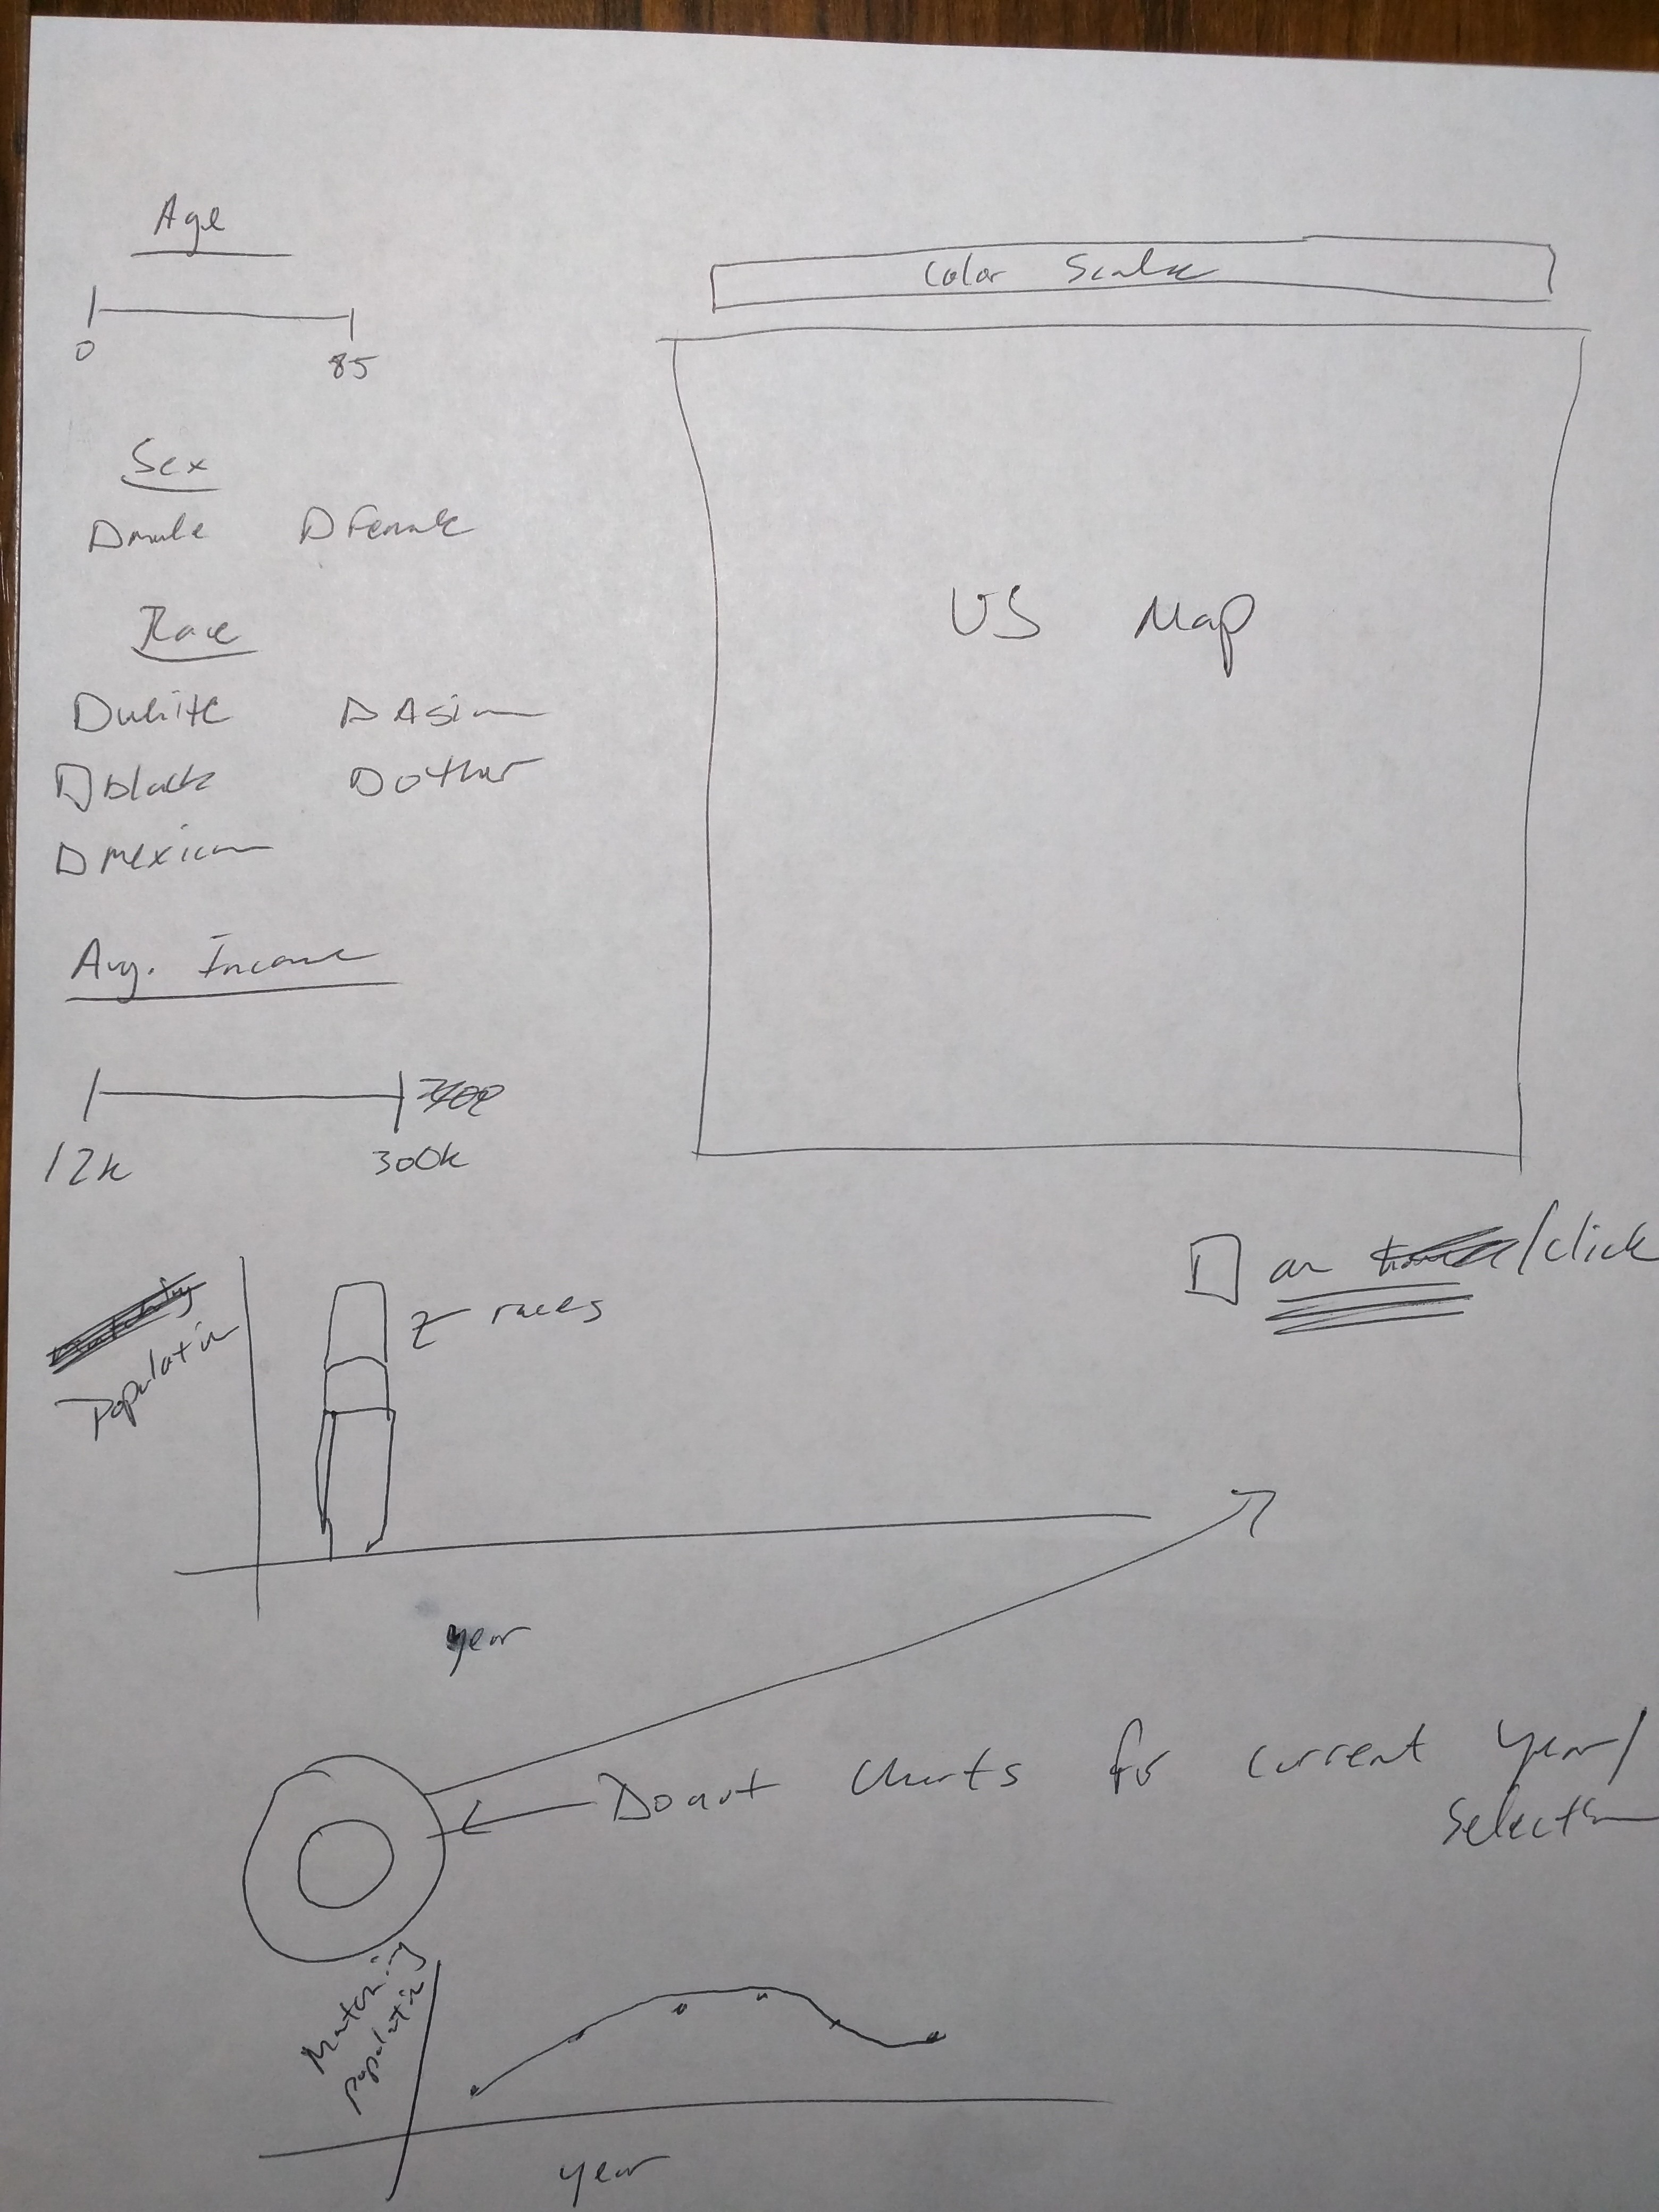 Age
0
85
Color Scale
Sex
male
Female
US Map
Race
white
Asian
black
other
mexican
Avg. Income
12k
300k
on /click
Population
races
year
Donut Charts for current year/
Selection
Matching
population
year